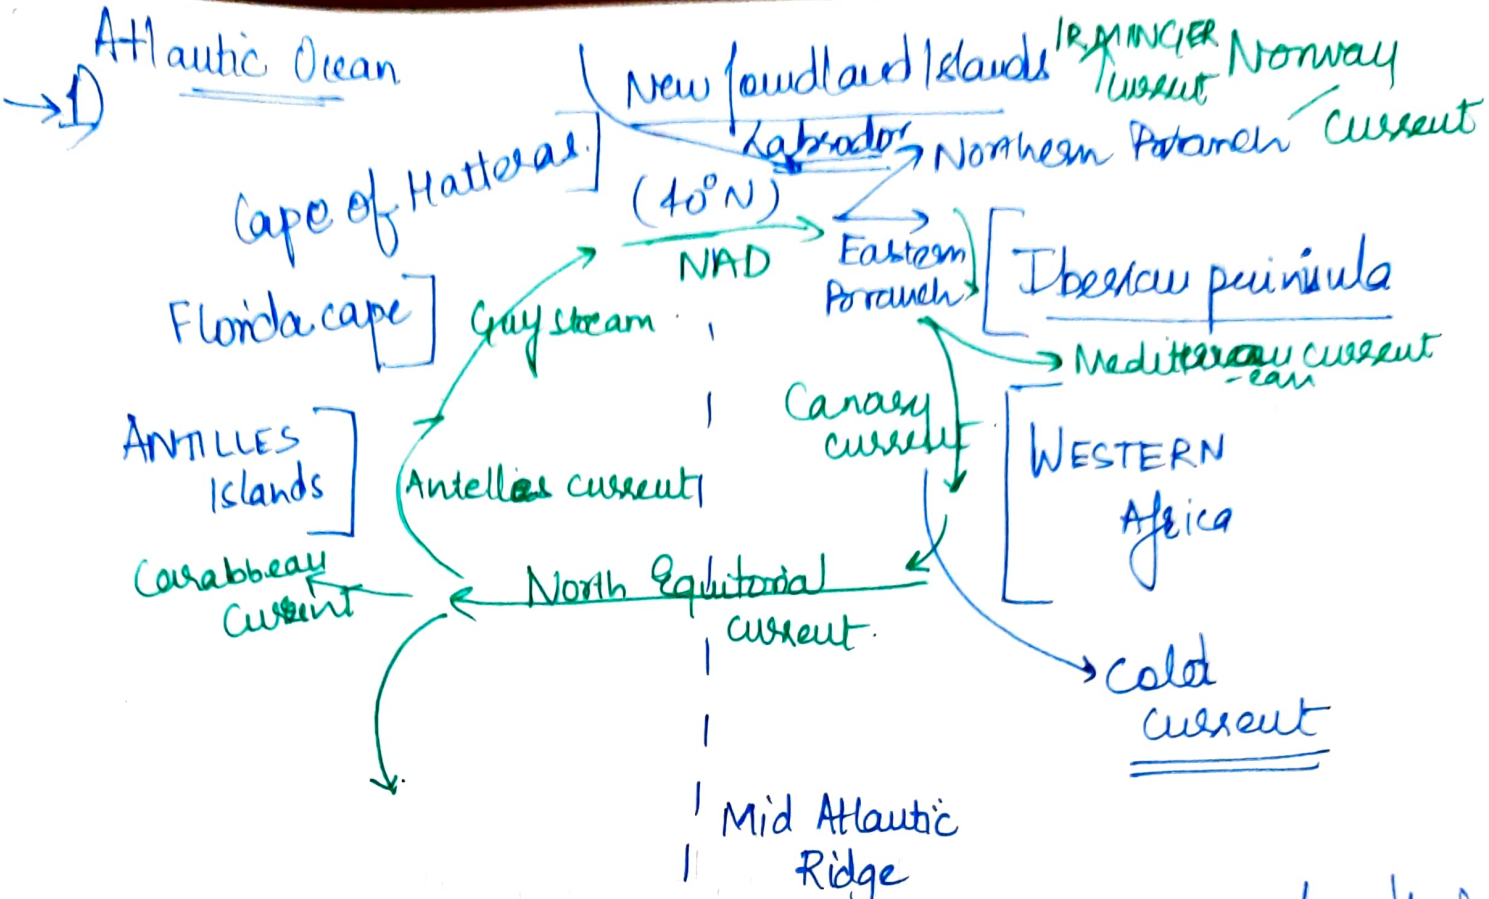 Atlantic Ocean
→ 1)
New foundland Islands
IRMINGER
current
Norway
current
Labrador
Northern Branch
Cape of Hatteras.
(40°N)
NAD
Eastern
Branch
Iberian peninsula
Florida cape
Gulf stream
Mediterranean current
-ean
Canary
current
ANTILLES
Islands
Antelles current
WESTERN
Africa
Carabbean
Current
North Equitorial
current.
Cold
current
Mid Atlantic
Ridge